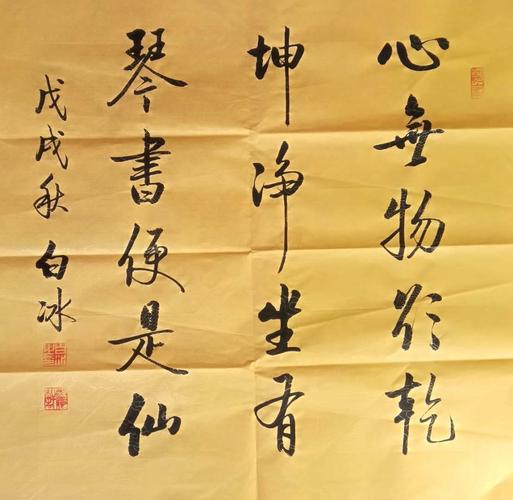 心無物欲乾
坤淨坐有
琴書便是仙
戊戌秋 白冰